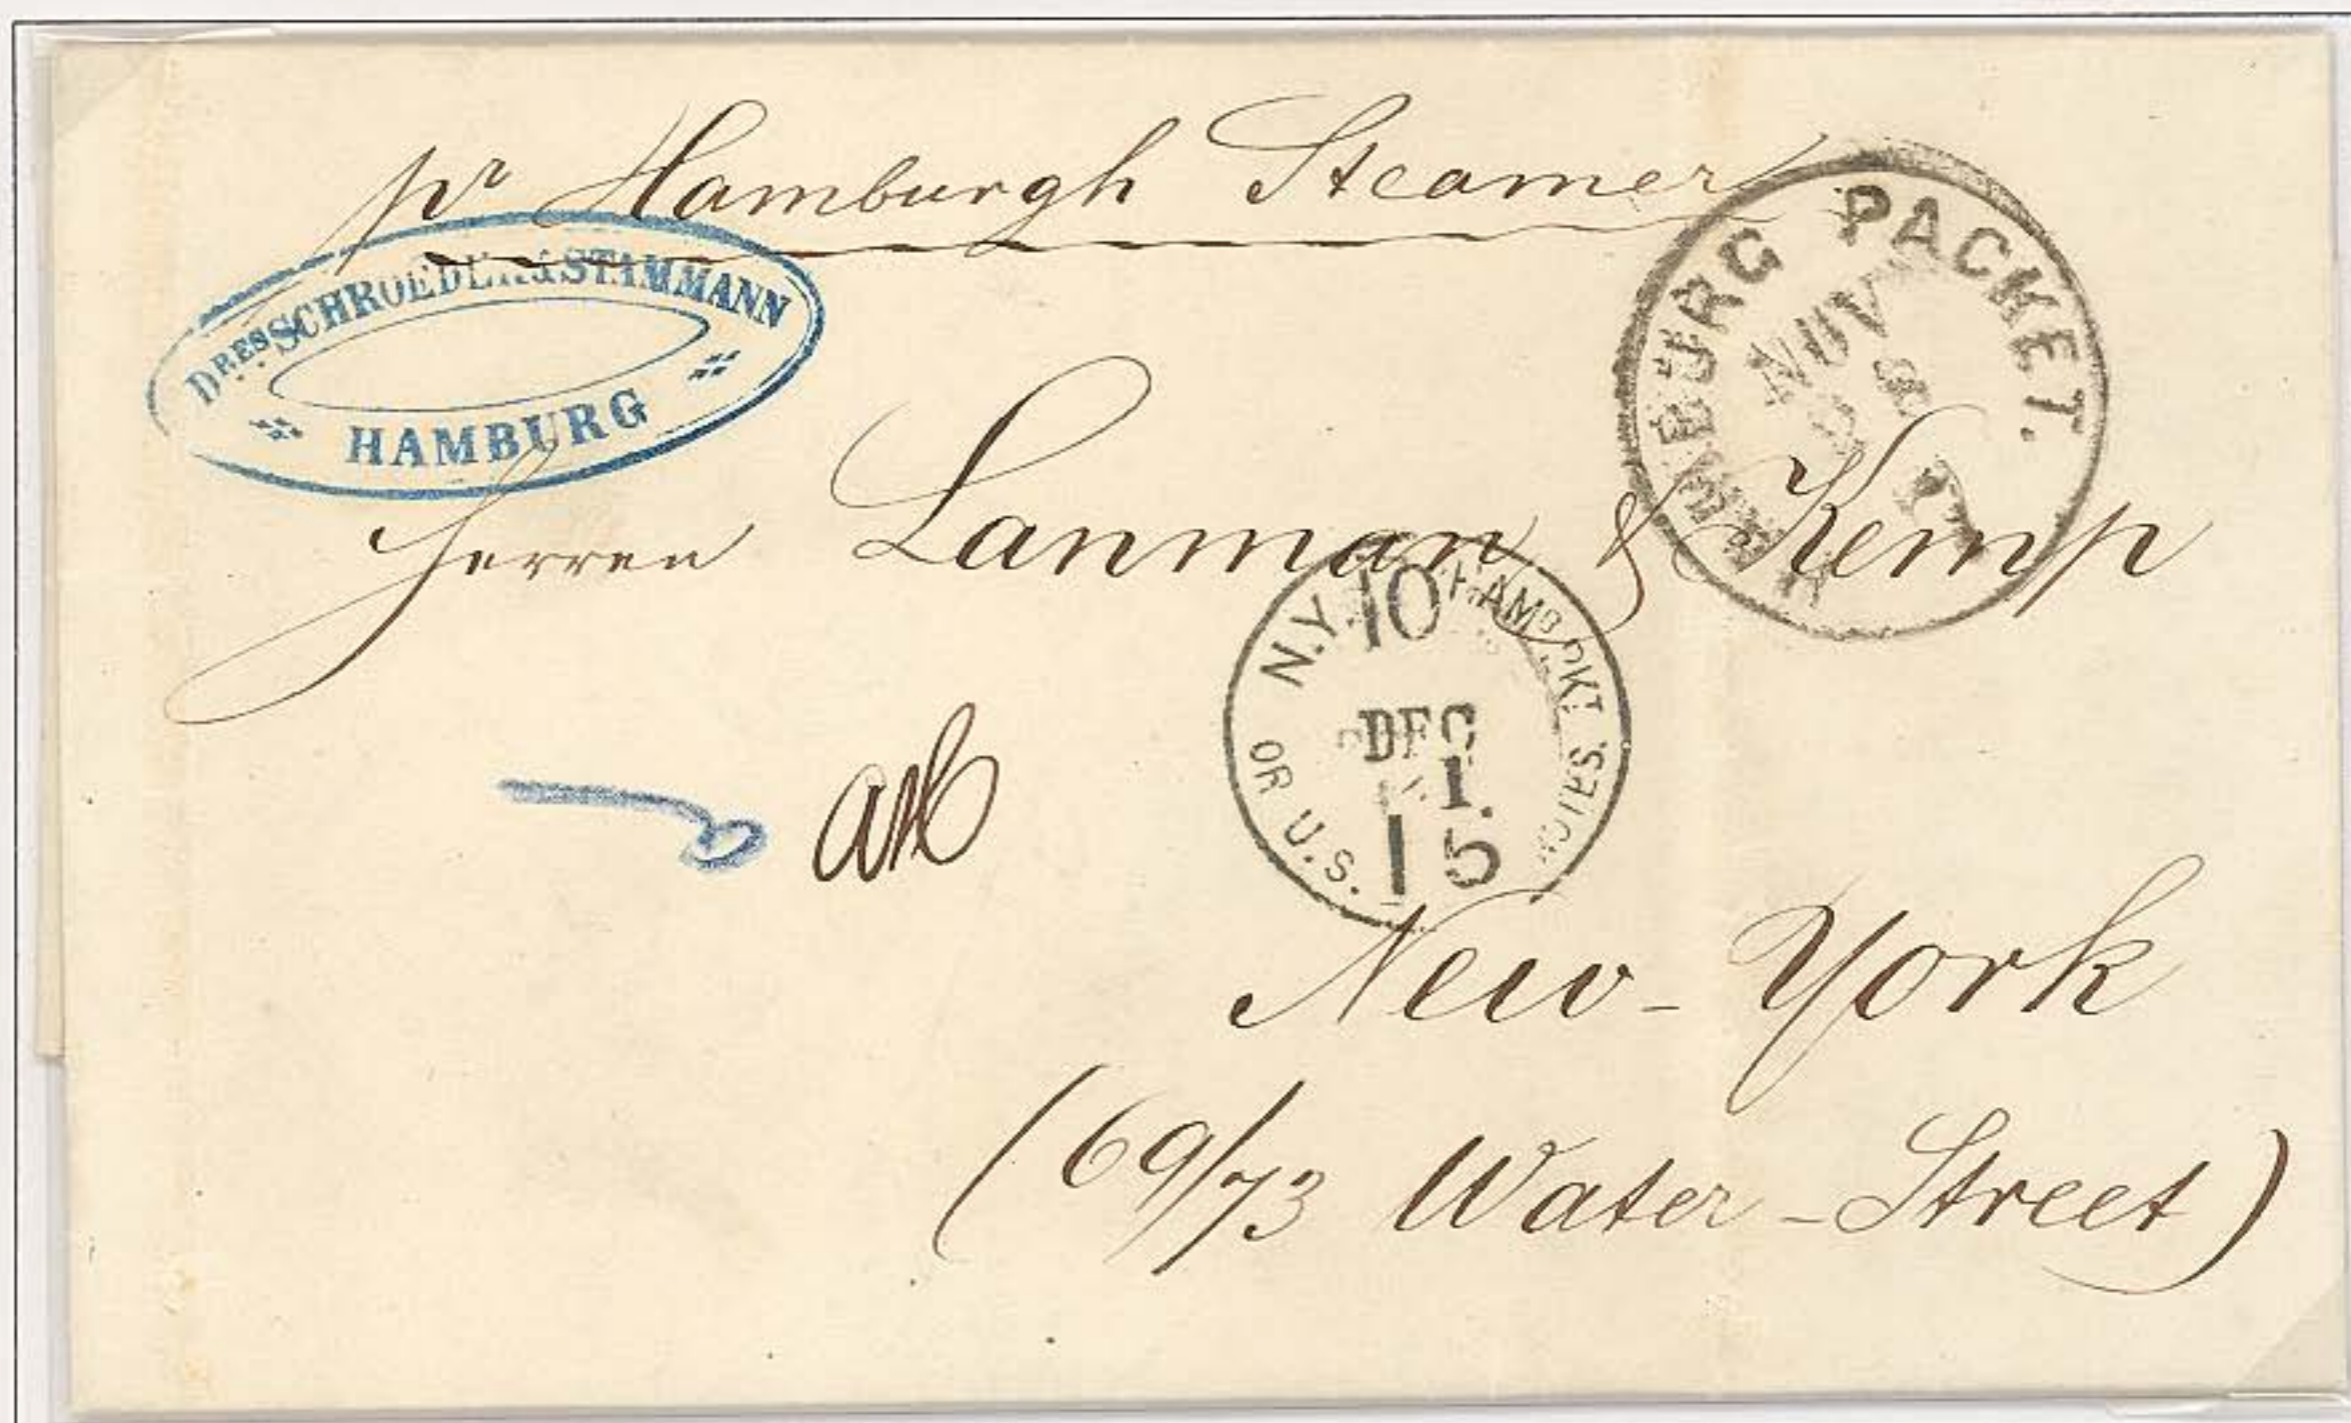 pr Hamburgh Steamer
DRES SCHROEDER & STAMMANN
HAMBURG
HAMBURG PACKET.
NOV
Herren Lanman & Kemp
N.Y. 10 HAMB PKT.
DEC
1.
15
OR U.S.
New-York
(69/73 Water-Street)